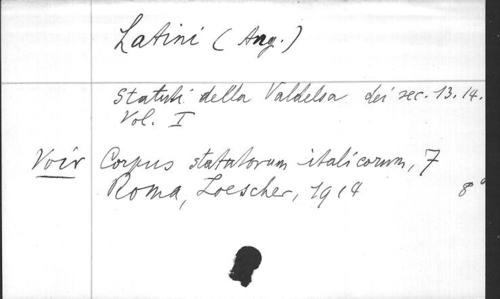 Latini (Ang.)
Statuti della Valdelsa dei sec. 13.14.
Vol. I
Voir Corpus statutorum italicorum, 7
Roma, Loescher, 1914 8°